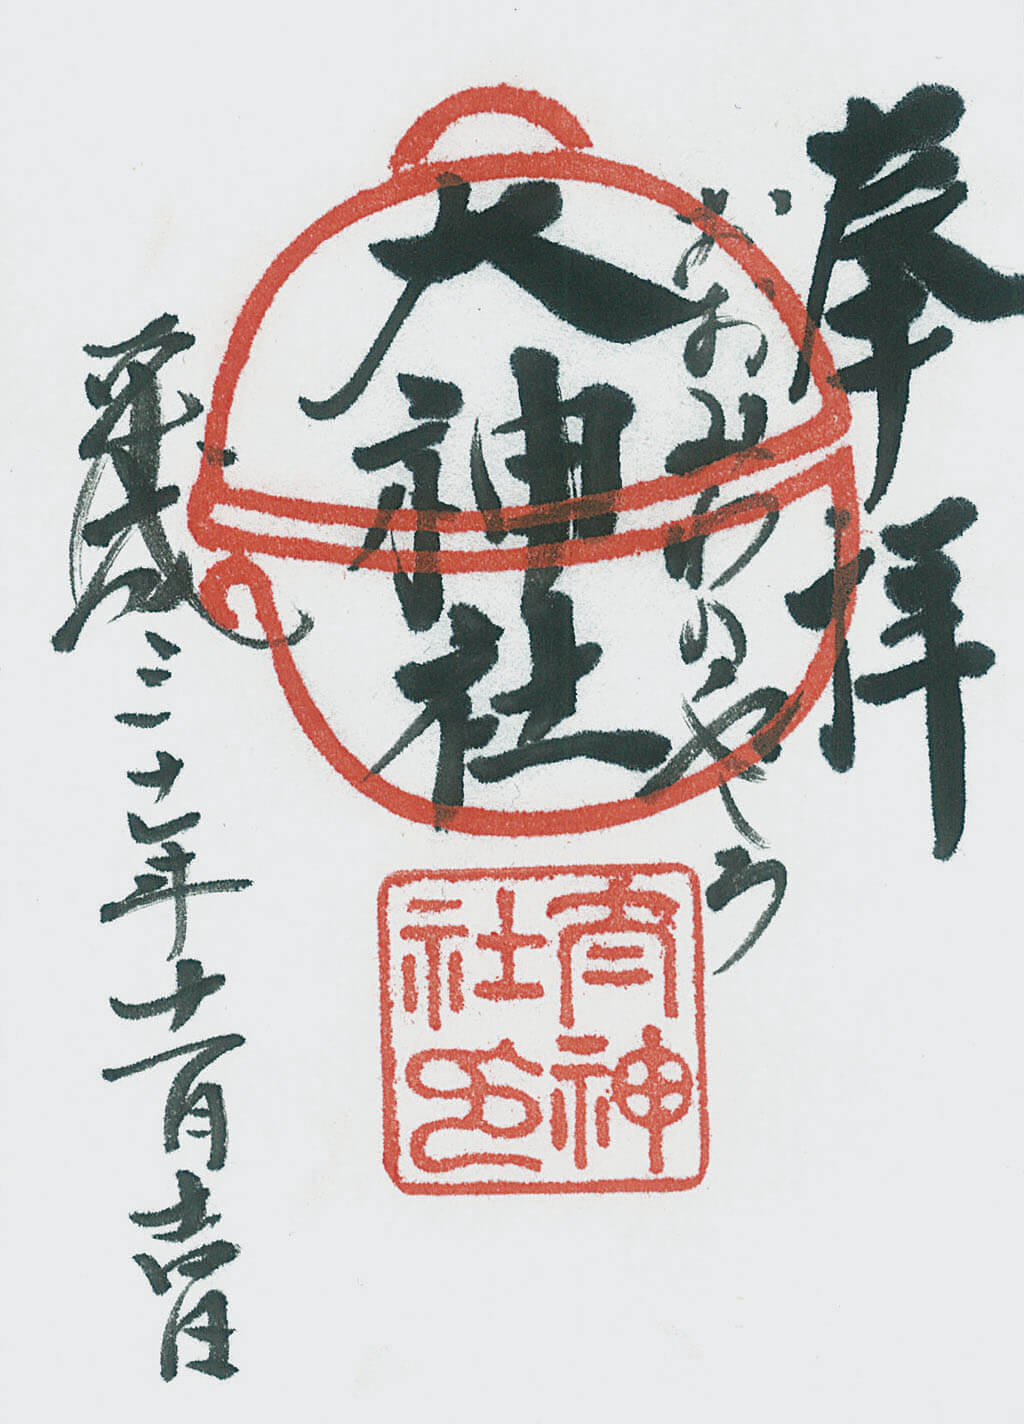 奉拝
おおみわのやしろ
大神社
平成三十年十一月吉日
大神社印